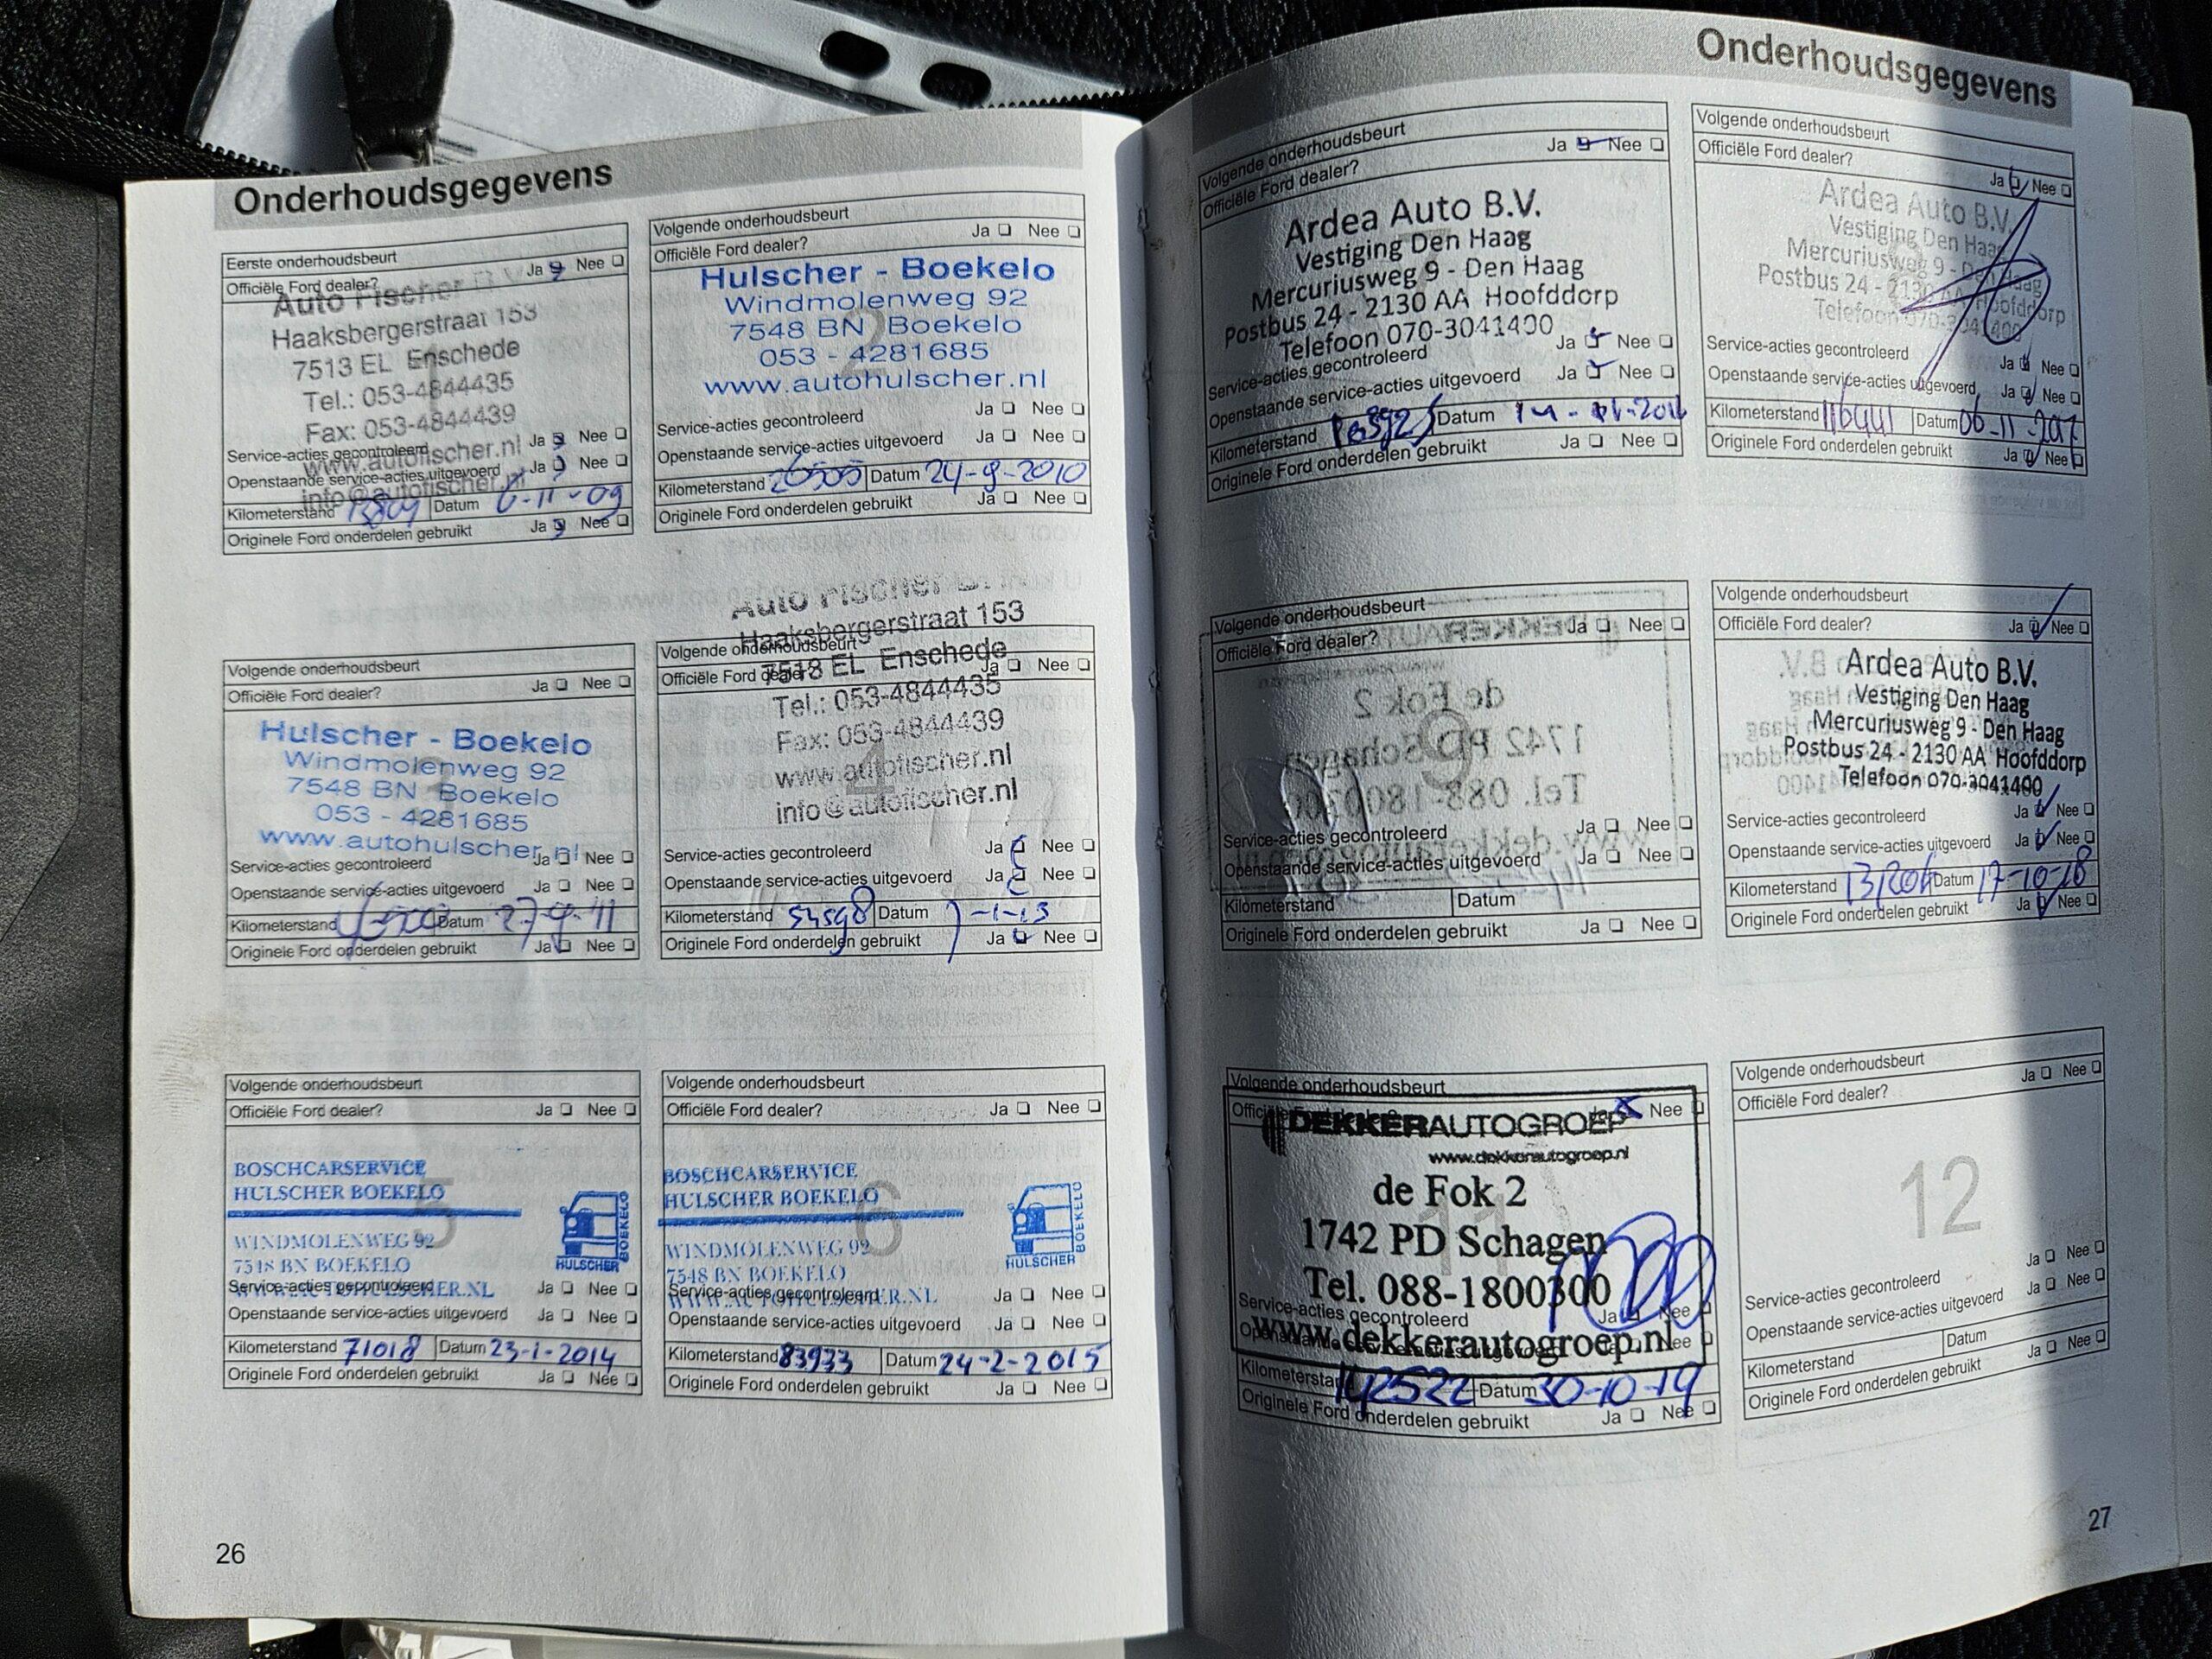 Onderhoudsgegevens
Eerste onderhoudsbeurt
Officiële Ford dealer? Ja Nee
Auto Fischer B.V.
Haaksbergerstraat 153
7513 EL Enschede
Tel.: 053-4844435
Fax: 053-4844439
www.autofischer.nl
info@autofischer.nl
Service-acties gecontroleerd Ja Nee
Openstaande service-acties uitgevoerd Ja Nee
Kilometerstand Datum 6-11-09
Originele Ford onderdelen gebruikt Ja Nee
Volgende onderhoudsbeurt
Officiële Ford dealer? Ja Nee
2
Hulscher - Boekelo
Windmolenweg 92
7548 BN Boekelo
053 - 4281685
www.autohulscher.nl
Service-acties gecontroleerd Ja Nee
Openstaande service-acties uitgevoerd Ja Nee
Kilometerstand Datum 24-9-2010
Originele Ford onderdelen gebruikt Ja Nee
Volgende onderhoudsbeurt
Officiële Ford dealer? Ja Nee
Hulscher - Boekelo
Windmolenweg 92
7548 BN Boekelo
053 - 4281685
www.autohulscher.nl
Service-acties gecontroleerd Ja Nee
Openstaande service-acties uitgevoerd Ja Nee
Kilometerstand Datum 27-9-11
Originele Ford onderdelen gebruikt Ja Nee
Auto Fischer B.
Haaksbergerstraat 153
Volgende onderhoudsbeurt
7513 EL Enschede
Officiële Ford dealer? Ja Nee
Tel.: 053-4844435
Fax: 053-4844439
4
www.autofischer.nl
info@autofischer.nl
Service-acties gecontroleerd Ja Nee
Openstaande service-acties uitgevoerd Ja Nee
Kilometerstand 54598 Datum 7-1-13
Originele Ford onderdelen gebruikt Ja Nee
Volgende onderhoudsbeurt
Officiële Ford dealer? Ja Nee
5
BOSCHCARSERVICE
HULSCHER BOEKELO
WINDMOLENWEG 92
7548 BN BOEKELO
WWW.AUTOHULSCHER.NL
HULSCHER
BOEKELO
Service-acties gecontroleerd Ja Nee
Openstaande service-acties uitgevoerd Ja Nee
Kilometerstand 71018 Datum 23-1-2014
Originele Ford onderdelen gebruikt Ja Nee
Volgende onderhoudsbeurt
Officiële Ford dealer? Ja Nee
6
BOSCHCARSERVICE
HULSCHER BOEKELO
WINDMOLENWEG 92
7548 BN BOEKELO
WWW.AUTOHULSCHER.NL
HULSCHER
BOEKELO
Service-acties gecontroleerd Ja Nee
Openstaande service-acties uitgevoerd Ja Nee
Kilometerstand 83933 Datum 24-2-2015
Originele Ford onderdelen gebruikt Ja Nee
26
Onderhoudsgegevens
Volgende onderhoudsbeurt
Officiële Ford dealer? Ja Nee
Ardea Auto B.V.
Vestiging Den Haag
Mercuriusweg 9 - Den Haag
Postbus 24 - 2130 AA Hoofddorp
Telefoon 070-3041400
Service-acties gecontroleerd Ja Nee
Openstaande service-acties uitgevoerd Ja Nee
Kilometerstand Datum
Originele Ford onderdelen gebruikt Ja Nee
Volgende onderhoudsbeurt
Officiële Ford dealer? Ja Nee
Ardea Auto B.V.
Vestiging Den Haag
Mercuriusweg 9 - Den Haag
Postbus 24 - 2130 AA Hoofddorp
Telefoon 070-3041400
Service-acties gecontroleerd Ja Nee
Openstaande service-acties uitgevoerd Ja Nee
Kilometerstand Datum 06-11-2017
Originele Ford onderdelen gebruikt Ja Nee
Volgende onderhoudsbeurt
Officiële Ford dealer? Ja Nee
9
Service-acties gecontroleerd Ja Nee
Openstaande service-acties uitgevoerd Ja Nee
Kilometerstand Datum
Originele Ford onderdelen gebruikt Ja Nee
Volgende onderhoudsbeurt
Officiële Ford dealer? Ja Nee
Ardea Auto B.V.
Vestiging Den Haag
Mercuriusweg 9 - Den Haag
Postbus 24 - 2130 AA Hoofddorp
Telefoon 070-3041400
Service-acties gecontroleerd Ja Nee
Openstaande service-acties uitgevoerd Ja Nee
Kilometerstand Datum 17-10-18
Originele Ford onderdelen gebruikt Ja Nee
Volgende onderhoudsbeurt
Officiële Ford dealer? Ja Nee
DEKKERAUTOGROEP
www.dekkerautogroep.nl
de Fok 2
1742 PD Schagen
11
Tel. 088-1800300
Service-acties gecontroleerd Ja Nee
www.dekkerautogroep.nl
Kilometerstand 142522 Datum 30-10-19
Originele Ford onderdelen gebruikt Ja Nee
Volgende onderhoudsbeurt
Officiële Ford dealer? Ja Nee
12
Service-acties gecontroleerd Ja Nee
Openstaande service-acties uitgevoerd Ja Nee
Kilometerstand Datum
Originele Ford onderdelen gebruikt Ja Nee
27